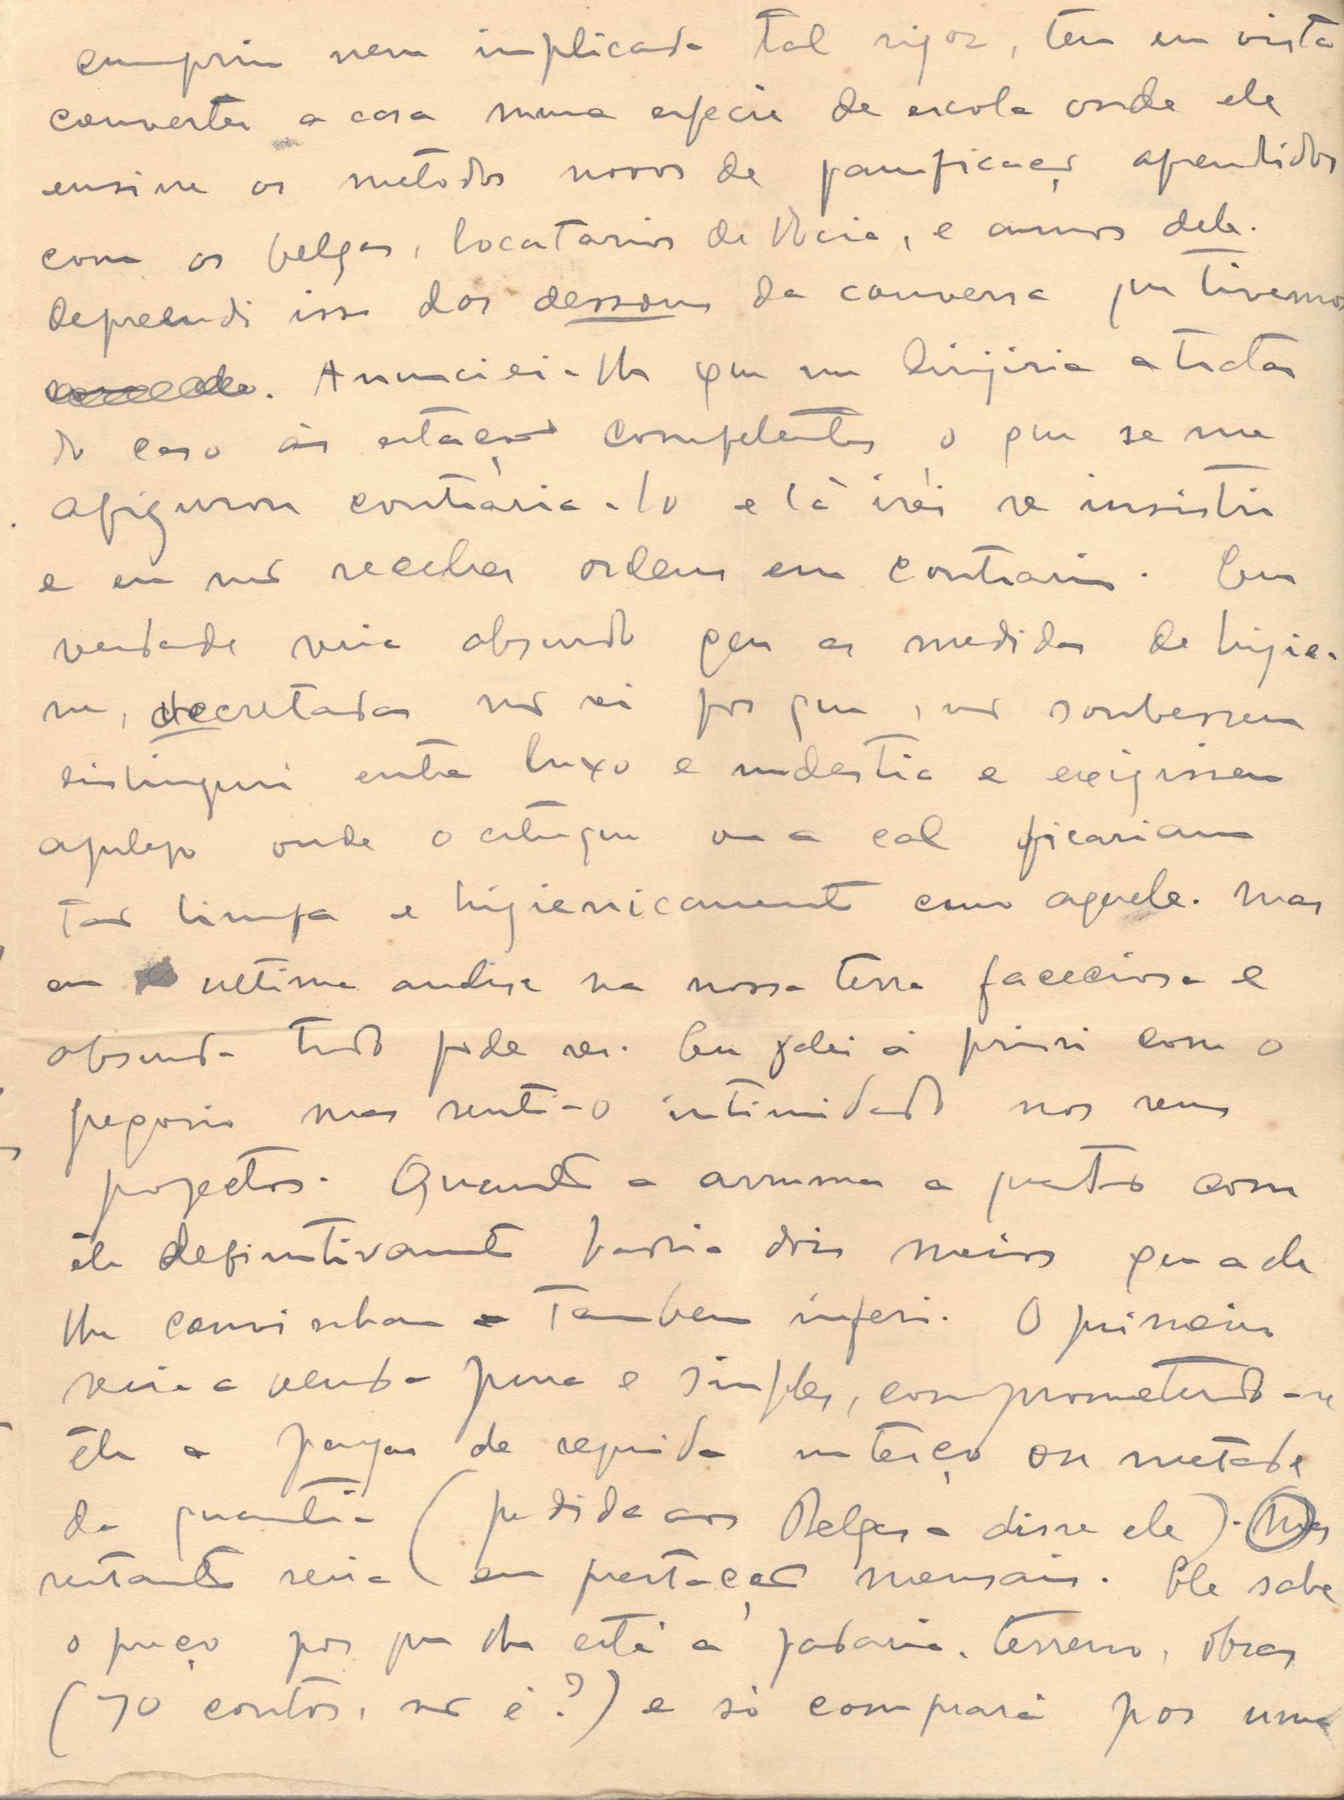 cumprir nem implicada tal rigor, tem em vista
converter a casa numa espécie de escola onde ele
ensine os métodos novos de panificação aprendidos
com os belgas, locatarios de Vacia, e amigos dele.
depreendi isso dos dessous da conversa que tivemos
Anunciei-lhe que me dirigiria a tratar
do caso ás estações competentes o que se me
afigurou contraria-lo e lá irei se insistir
e eu não receber ordem em contrario. Em
verdade seria absurdo que as medidas de higie-
ne, decretadas não sei por que, não soubessem
distinguir entre luxo e modestia e exigissem
azulejo onde o estuque ou a cal ficariam
tão limpa e higienicamente como aquele. Mas
em ultima analise na nossa terra facciosa e
absurda tudo pode ser. Eu falei á priori com o
Gregorio mas senti-o intimidado nos seus
projectos. Quanto a arrumar a questão com
ele definitivamente havia dois meios que a ele
lhe convinham e tambem inferi. O primeiro
seria a venda pura e simples, comprometendo-se
ele a pagar de seguida um terço ou metade
da quantia (pedida aos Belgas - disse ele). Mas
restante seria em prestações mensais. Ele sabe
o preço por que lhe está a padaria, terreno, obras
(70 contos, não é?) e só comprará por uma